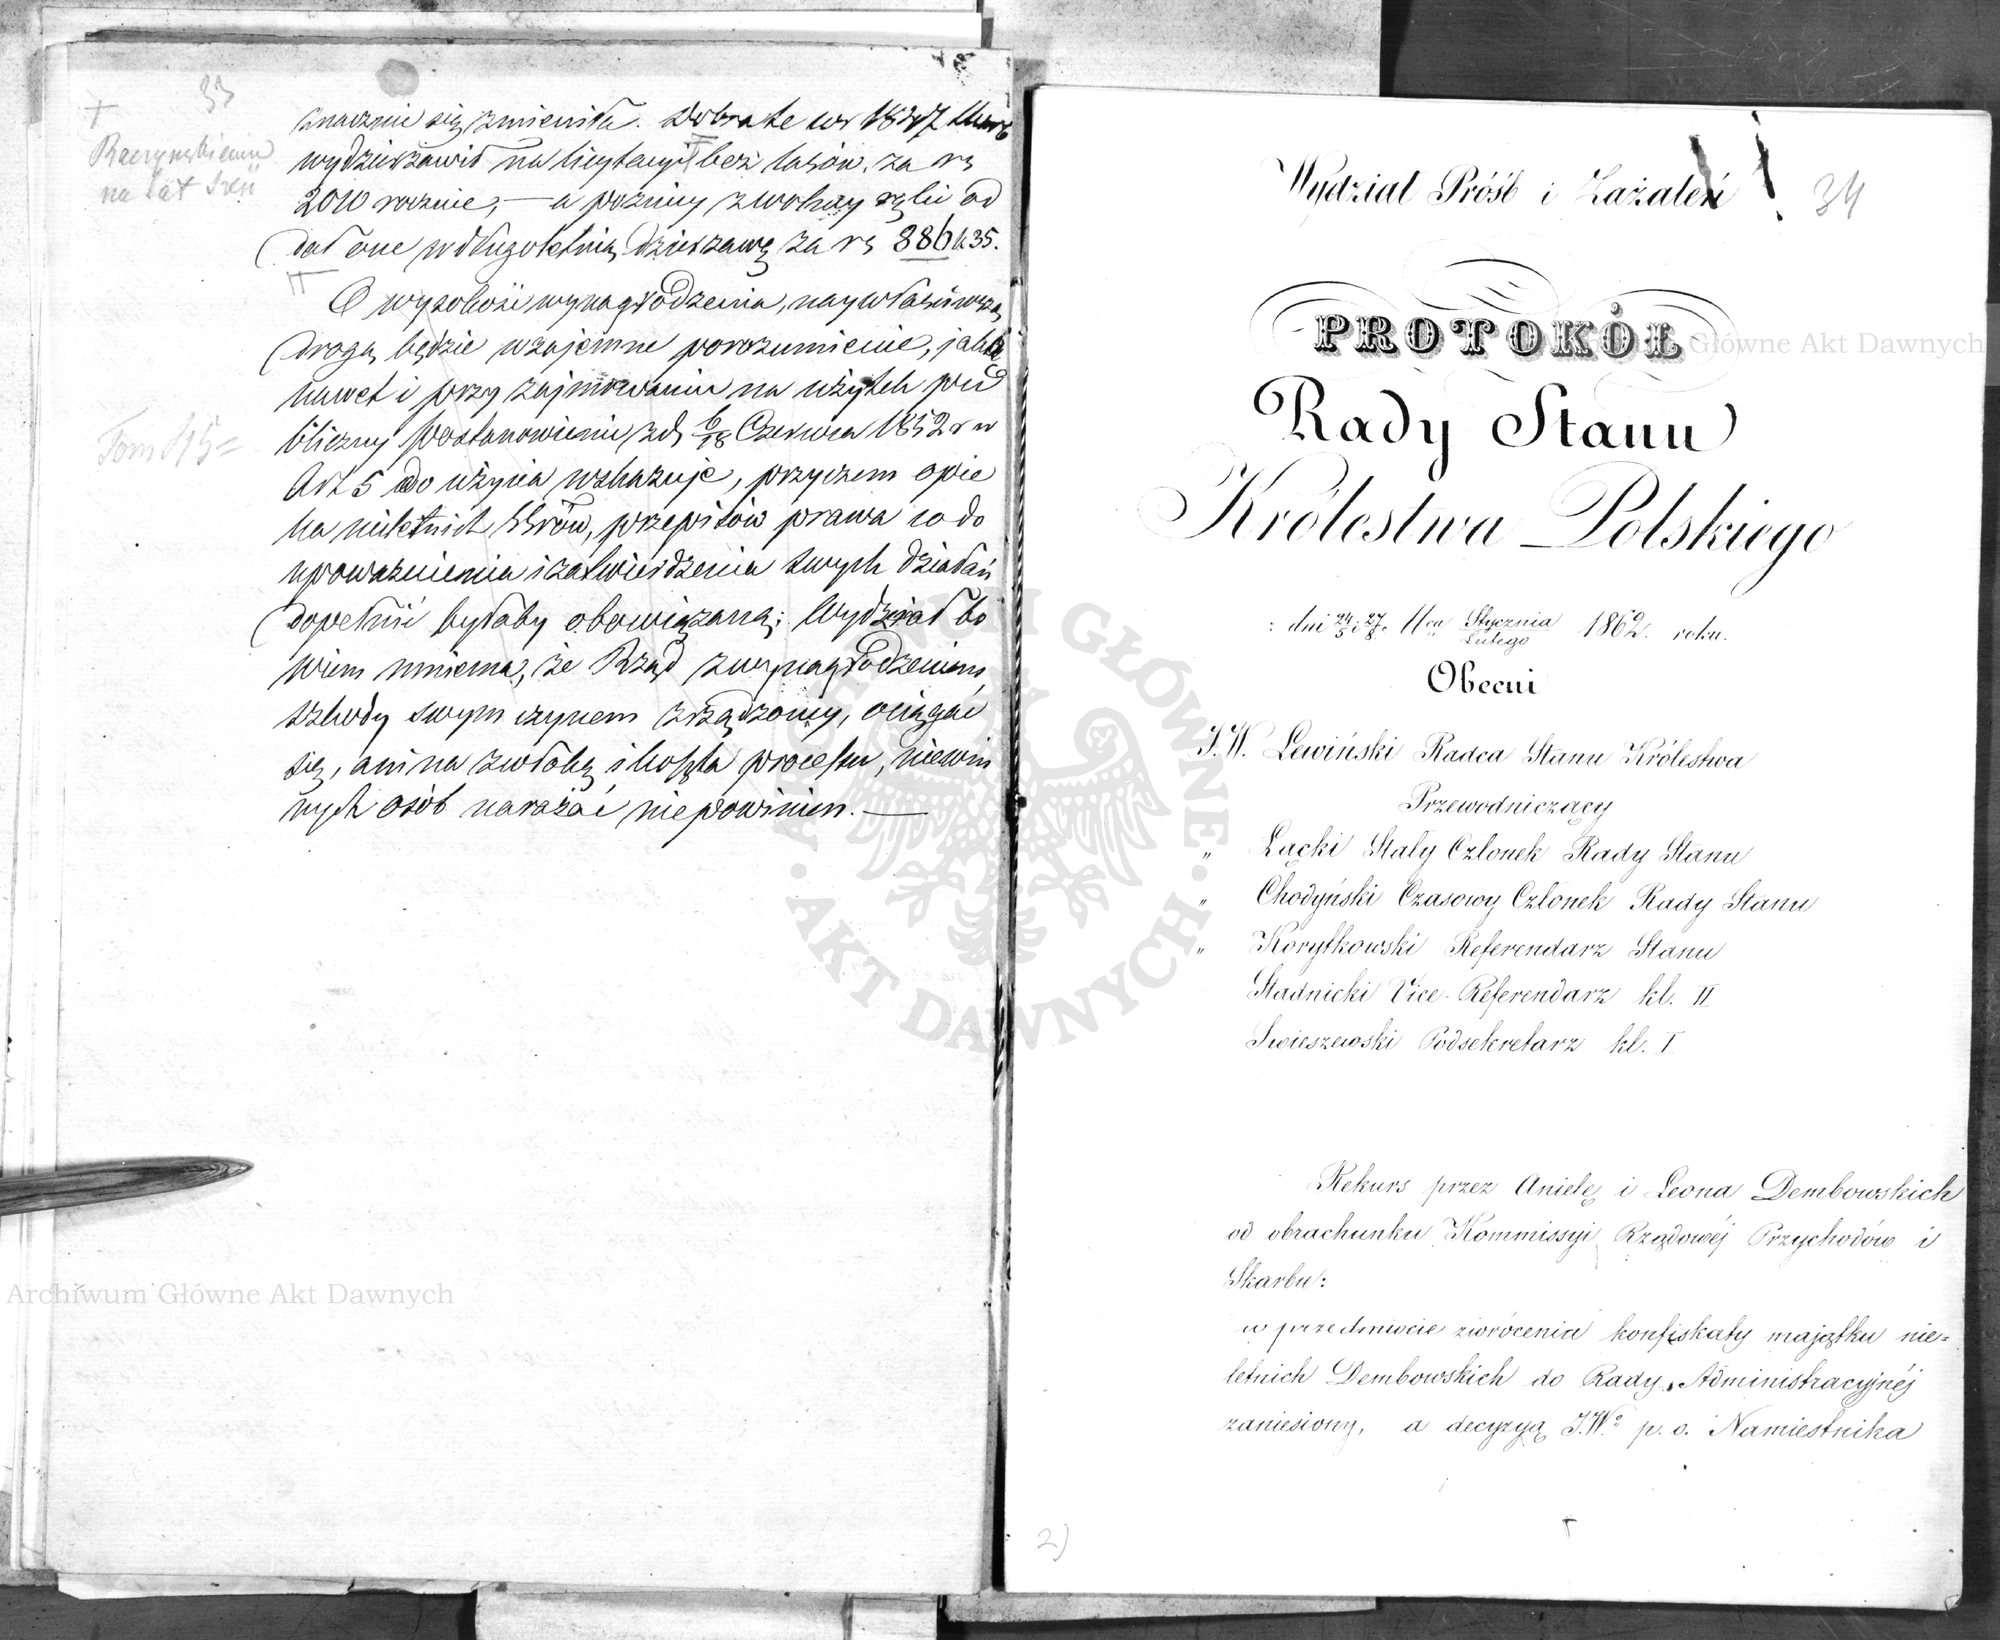 33
+
Raczyńskiemu
na lat sześć
znacznie się zmieniła. Dobra te w r 1847
wydzierżawił na licytacyi bez lasów, za rs
2010 rocznie, — a pózniéj
dał one w długoletnią dzierżawę za rs 886 k 35.
O wysokości wynagrodzenia, najwłaściwszą
drogą będzie wzajemne porozumienie, jakie
nawet i przy zajmowaniu na użytek pu
bliczny postanowienie z d. 6/18 Czerwca 1852 r w
Art 5 do użycia wskazuje, przyczem opie
ka nieletnich SSrów, przepisów prawa co do
upoważnienia i zatwierdzenia swych działań
dopełnić byłaby obowiązaną; Wydział bo
wiem mniema, że Rząd z wynagrodzeniem
szkody swym czynem zrządzonéj, ociągać
się, ani na zwłokę i koszta processu, niewin
nych osób narażać niepowinien. —
Tom 815=
Wydział Próśb i Zażaleń
34
PROTOKÓŁ
Rady Stanu
Królestwa Polskiego
: dni 24/5 i 27/8. 11go Stycznia/Lutego 1862. roku.
Obecni
J.W. Lewiński Radca Stanu Królestwa
Przewodniczący
„ Łącki Stały Członek Rady Stanu
„ Chodyński Czasowy Członek Rady Stanu
„ Korytkowski Referendarz Stanu
Stadnicki Vice-Referendarz kl. II
Swieszewski Podsekretarz kl. I
Rekurs przez Anielę i Leona Dembowskich
od obrachunku Kommissyi Rządowéj Przychodów i
Skarbu:
w przedmiocie zwrócenia konfiskaty majątku nie=
letnich Dembowskich do Rady Administracyjnéj
zaniesiony, a decyzyą J.W.o p. o. Namiestnika
2)
Archiwum Główne Akt Dawnych
Główne Akt Dawnych
ARCHIWUM GŁÓWNE · AKT DAWNYCH ·